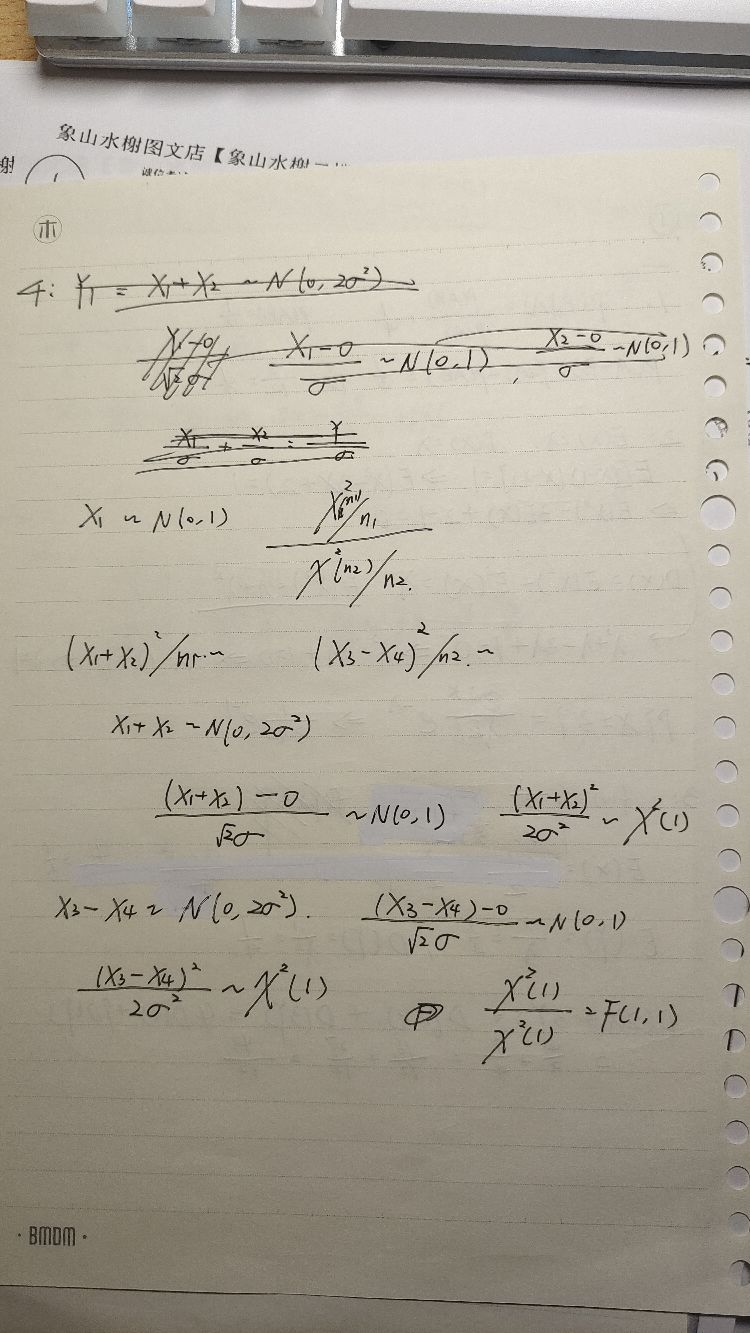 象山水榭图文店【象山水榭
榭
木
4: Y₁ = X₁+X₂ ~ N(0, 2σ²)
X₁-0/√2σ (X₁-0)/σ ~ N(0,1) , (X₂-0)/σ ~ N(0,1)
X₁/σ + X₂/σ = Y/σ
X₁ ~ N(0,1) (χ²(n₁)/n₁)/(χ²(n₂)/n₂).
(X₁+X₂)²/n₁.~ (X₃-X₄)²/n₂.~
X₁+X₂ ~ N(0, 2σ²)
((X₁+X₂)-0)/(√2σ) ~ N(0,1) (X₁+X₂)²/(2σ²) ~ χ²(1)
X₃-X₄ ~ N(0, 2σ²). ((X₃-X₄)-0)/(√2σ) ~ N(0,1)
(X₃-X₄)²/(2σ²) ~ χ²(1) χ²(1)/χ²(1) = F(1,1)
· BMDM ·